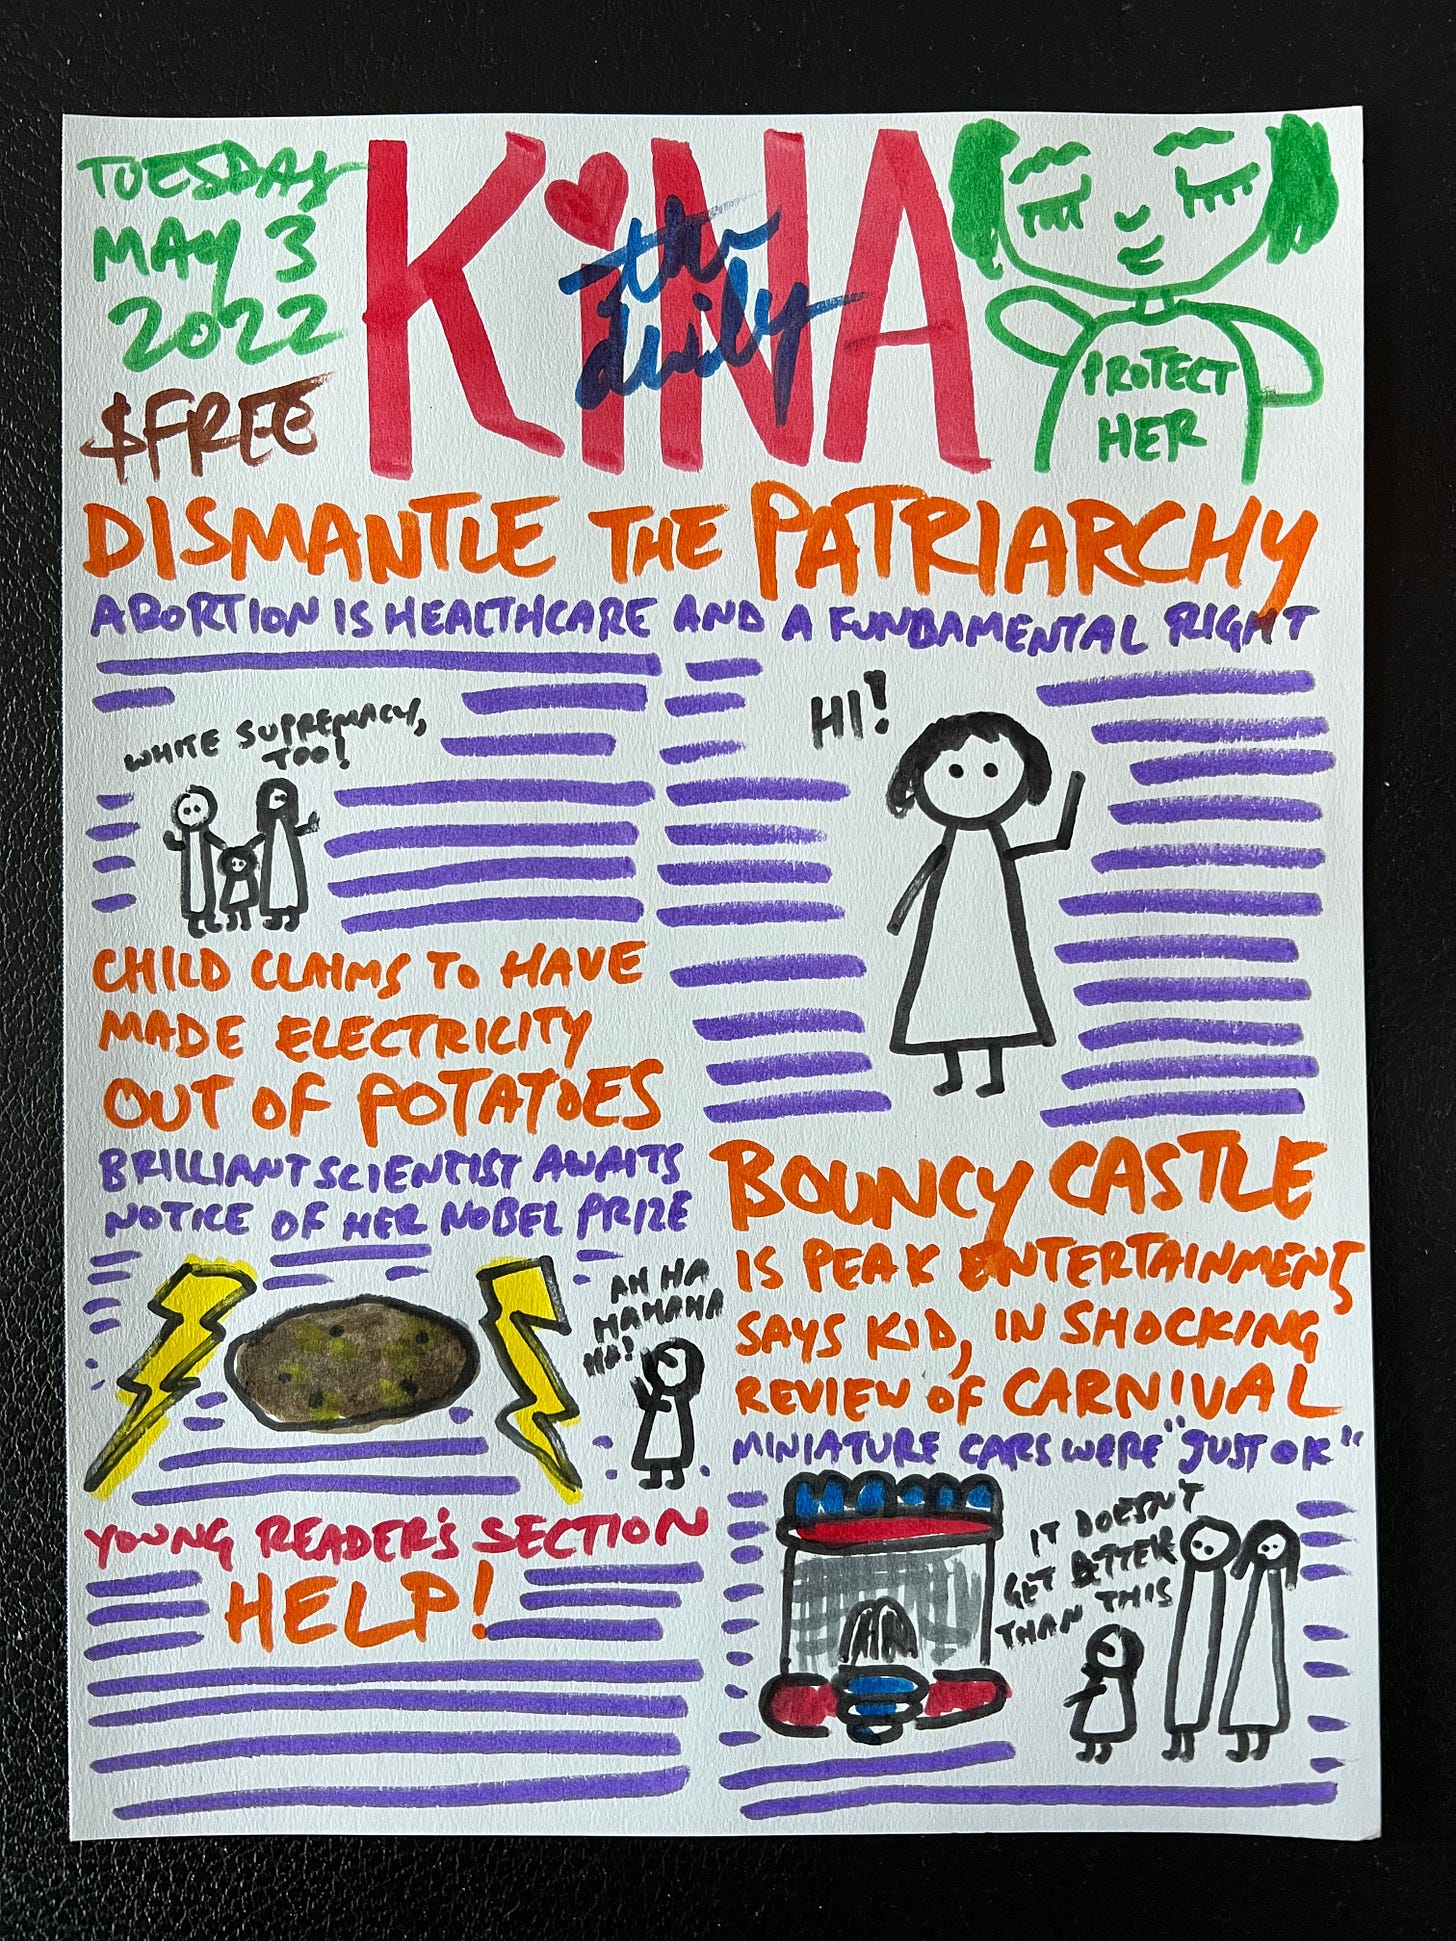 TUESDAY
MAY 3
2022
$FREE
KiNA
the
daily
PROTECT
HER
DISMANTLE THE PATRIARCHY
ABORTION IS HEALTHCARE AND A FUNDAMENTAL RIGHT
WHITE SUPREMACY,
TOO!
HI!
CHILD CLAIMS TO HAVE
MADE ELECTRICITY
OUT OF POTATOES
BRILLIANT SCIENTIST AWAITS
NOTICE OF HER NOBEL PRIZE
AH HA
HAHAHA
HA!
YOUNG READER'S SECTION
HELP!
BOUNCY CASTLE
IS PEAK ENTERTAINMENT,
SAYS KID, IN SHOCKING
REVIEW OF CARNIVAL
MINIATURE CARS WERE "JUST OK"
IT DOESN'T
GET BETTER
THAN THIS